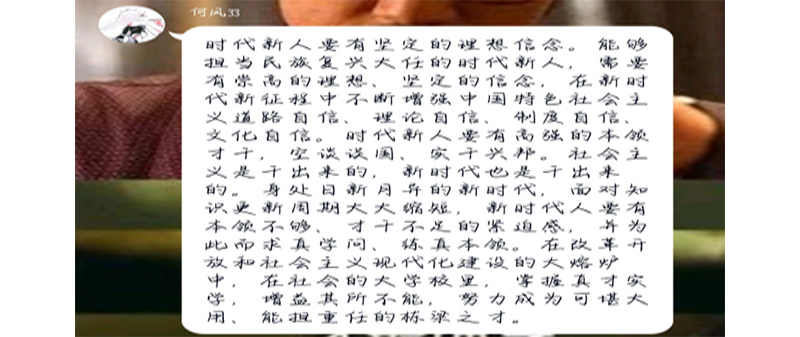 何风33
时代新人要有坚定的理想信念。能够
担当民族复兴大任的时代新人，需要
有崇高的理想、坚定的信念，在新时
代新征程中不断增强中国特色社会主
义道路自信、理论自信、制度自信、
文化自信。时代新人要有高强的本领
才干，空谈误国、实干兴邦。社会主
义是干出来的，新时代也是干出来
的。身处日新月异的新时代，面对知
识更新周期大大缩短，新时代人要有
本领不够、才干不足的紧迫感，并为
此而求真学问、练真本领。在改革开
放和社会主义现代化建设的大熔炉
中，在社会的大学校里，掌握真才实
学，增益其所不能，努力成为可堪大
用、能担重任的栋梁之才。